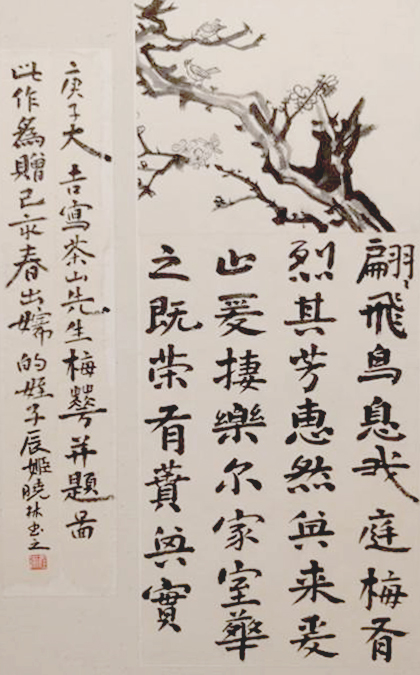 翩々飛鳥息我庭梅有
烈其芳惠然與来爰
止爰棲樂尔家室華
之既荣有蕡與實
庚子大吉寫茶山先生梅并題啚
此作為贈己亥春出嫁的姪子辰姬曉林书之